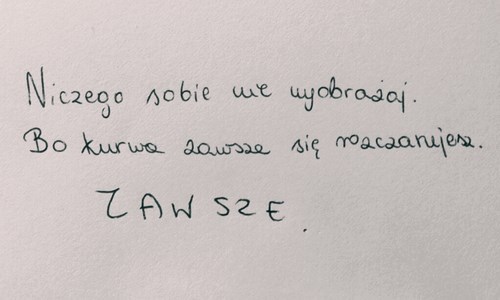 Niczego sobie nie wyobrażaj.
Bo kurwa zawsze się rozczarujesz.
ZAWSZE.